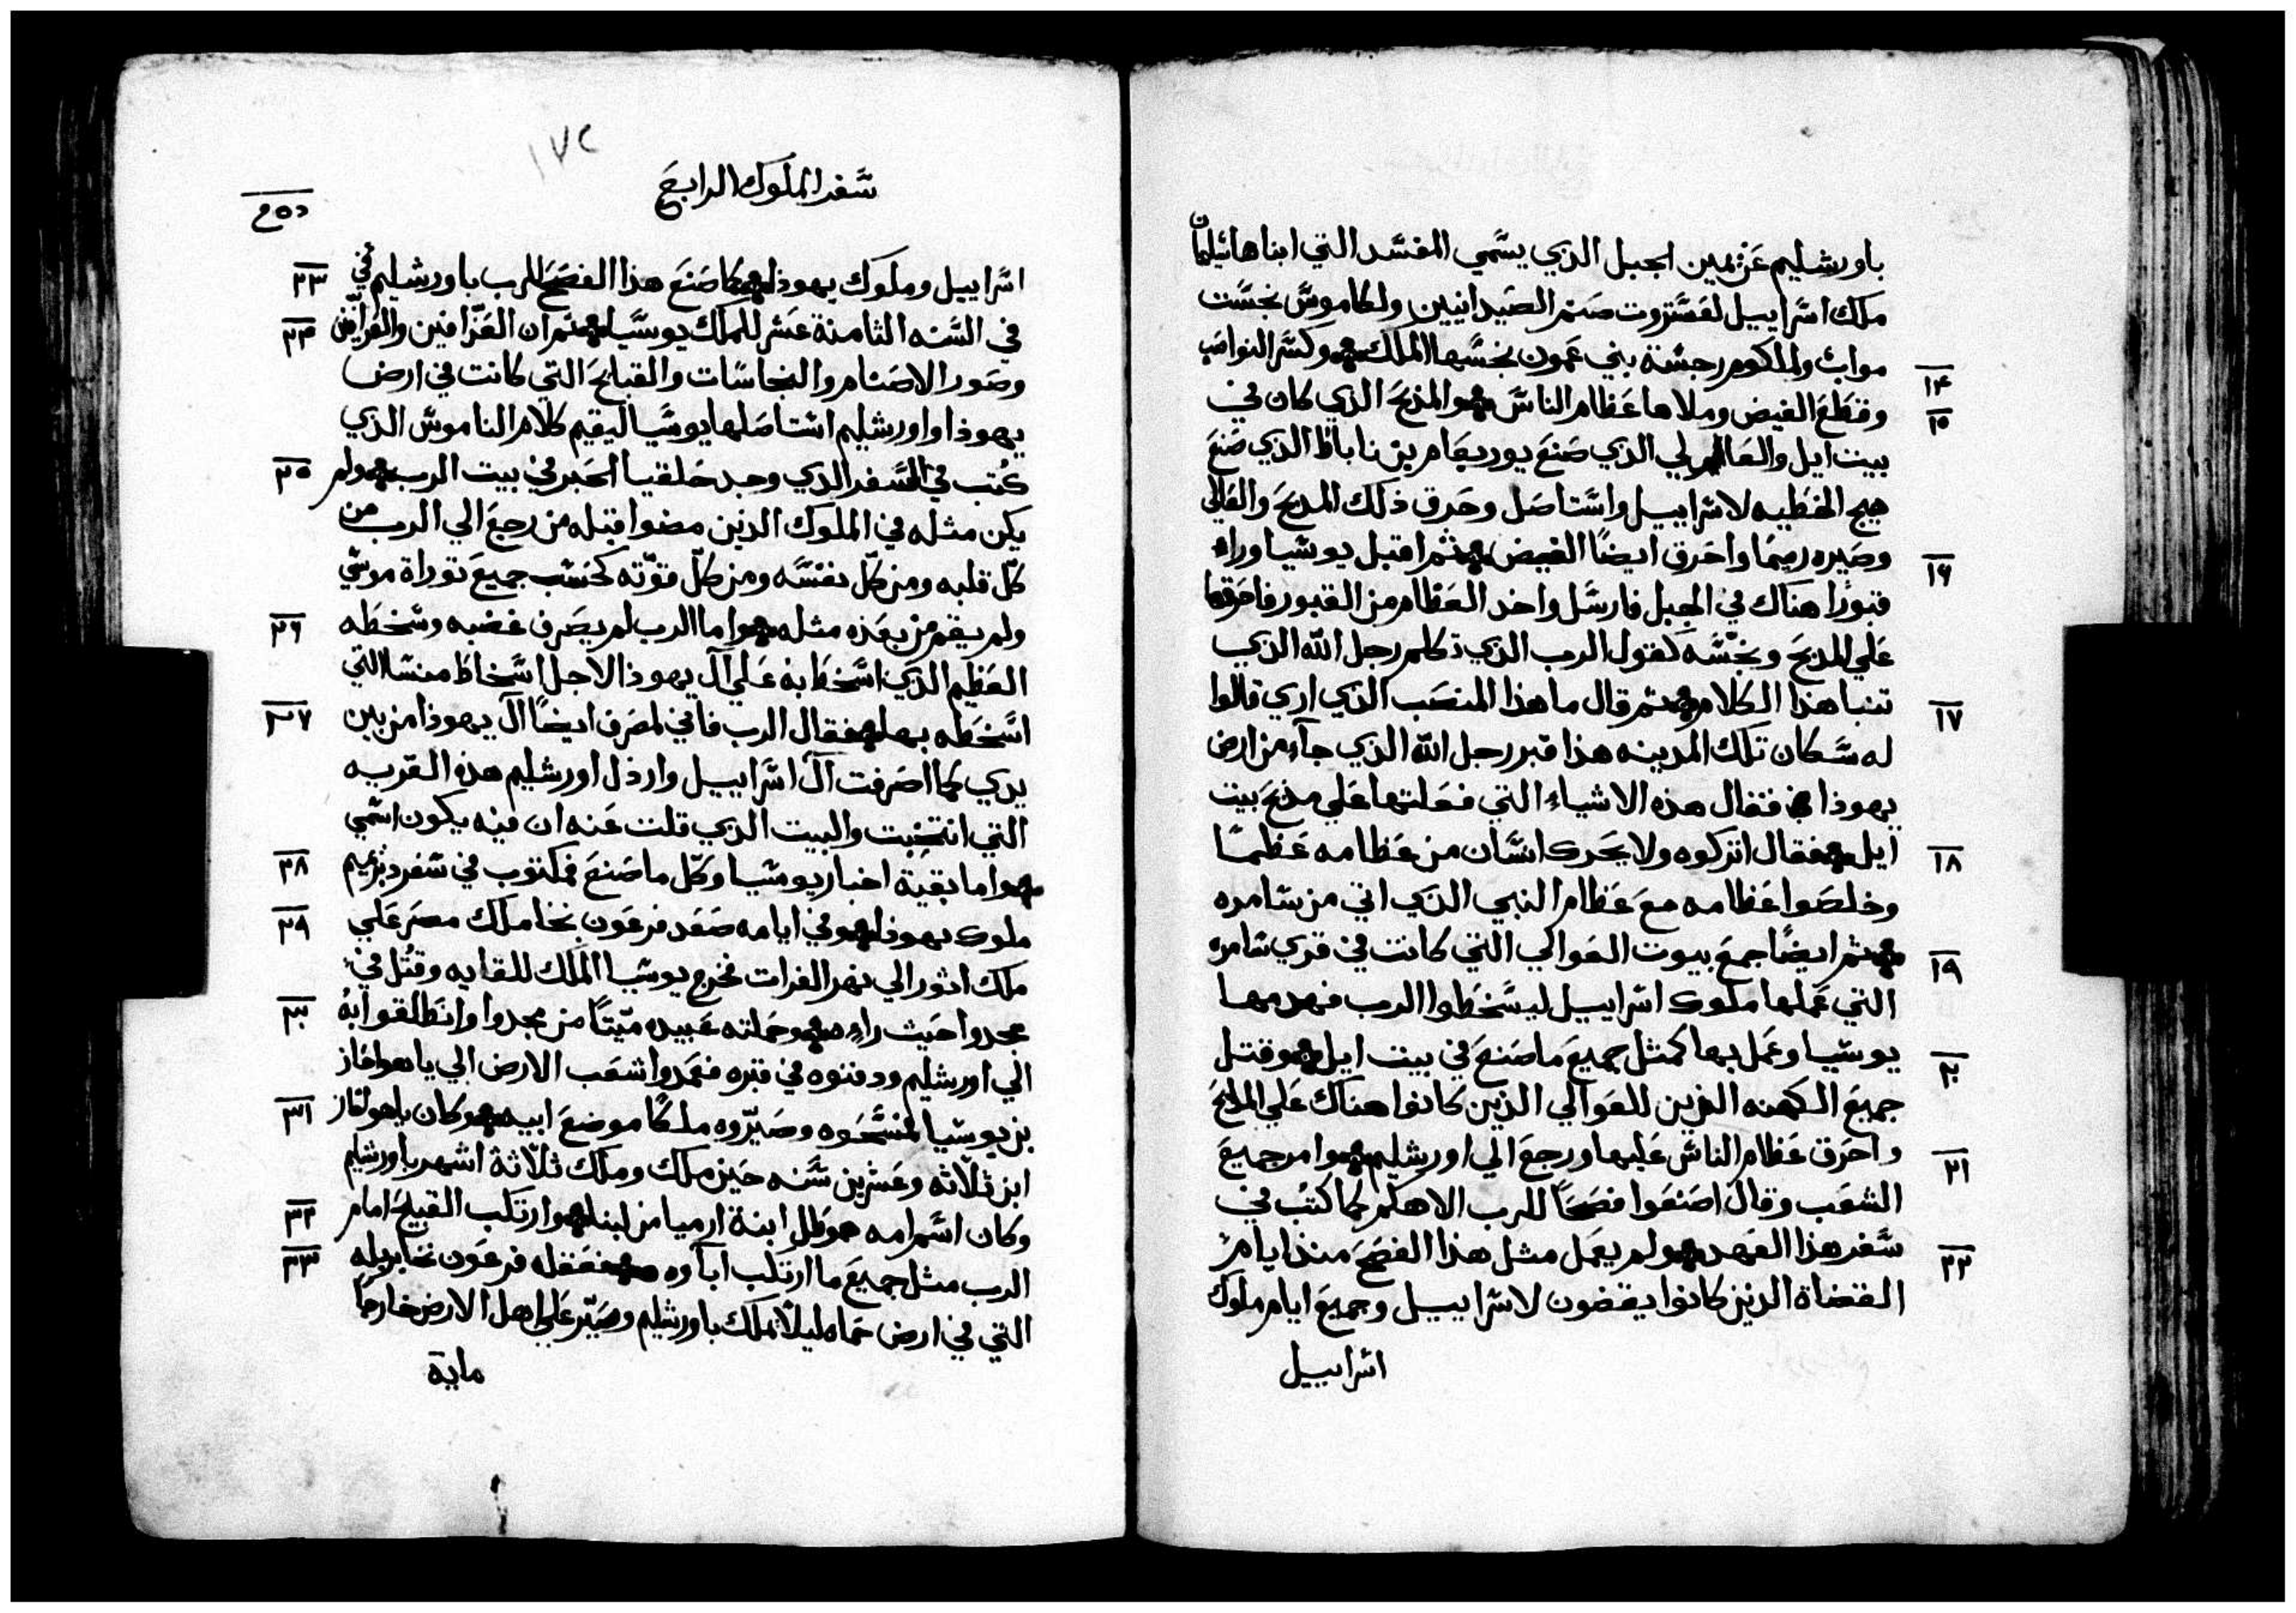 باورشليم عن يمين الجبل الذي يسمي المفسد التي ابناها سليمان
ملك اسراييل لعستروت صنم الصيدانيين ولكاموش نجست
مواب ولملكوم رجسة بني عمون نجسها الملك وكسر النواصب
١٤
وقطع الغيض وملاها عظام الناس والمذبح الذي كان في
١٥
بيت ايل والعالي الذي صنع يوربعام بن ناباط الذي صنع
هيج الخطيه لاسراييل واستاصل وحرق ذلك المذبح والعالي
وصيره رميما واحرق ايضا الغيض ثم اقبل يوشيا وراء
١٦
قبورا هناك في الجبل فارسل واخد العظام من القبور فاحرقها
علي المذبح ونجسه كقول الرب الذي تكلم رجل الله الذي
تنبا هذا الكلام ثم قال ما هذا المنصب الذي اري قالوا
١٧
له سكان تلك المدينه هذا قبر رجل الله الذي جاء من ارض
يهوذا فقال هذه الاشياء التي فعلتها علي مذبح بيت
ايل فقال اتركوه ولا يحرك انسان من عظامه عظما
١٨
وخلصوا عظامه مع عظام النبي الذي اتي من سامره
ثم ايضا جمع بيوت العوالي التي كانت في قري سامره
١٩
التي عملها ملوك اسراييل ليسخطوا الرب فهدمها
يوشيا وعمل بها كمثل جميع ما صنع في بيت ايل وقتل
٢٠
جميع الكهنه الذين للعوالي الذين كانوا هناك علي المذبح
واحرق عظام الناس عليها ورجع الي اورشليم وامر جميع
٢١
الشعب وقال اصنعوا فصحا للرب الاهكم كما كتب في
سفر هذا العهد ولم يعمل مثل هذا الفصح منذ ايام
٢٢
القضاة الدين كانوا يقضون لاسراييل وجميع ايام ملوك
اسراييل
١٧٢
سفر الملوك الرابع
اسراييل وملوك يهوذا كما صنع هذا الفصح للرب باورشليم في
٢٣
في السنه الثامنة عشر للملك يوسيا ثم ان العرافين
٢٤
وصور الاصنام والنجاسات والقبايح التي كانت في ارض
يهوذا واورشليم استاصلها يوسيا ليقيم كلام الناموس الذي
كتب في السفر الذي وجد حلقيا الحبر في بيت الرب ولم
٢٥
يكن مثله في الملوك الدين مضوا قبله من رجع الي الرب من
كل قلبه ومن كل نفسه ومن كل قوته كحسب جميع توراة موسي
ولم يقم من بعده مثله واما الرب لم يصرف غضبه وسخطه
٢٦
العظيم الذي اسخط به علي ال يهوذا لاجل اسخاط منسا التي
اسخطه بها فقال الرب فاني لمصرف ايضا ال يهوذا من بين
٢٧
يدي كما اصرفت ال اسراييل وارذل اورشليم هذه القريه
التي انتخبت والبيت الذي قلت عنه ان فيه يكون اسمي
واما بقية اخبار يوسيا وكل ما صنع فمكتوب في سفر
٢٨
ملوك يهوذا وفي ايامه صعد فرعون نخا ملك مصر علي
٢٩
ملك اثور الي نهر الفرات فخرج يوسيا الملك للقايه وقتل في
مجدوا حيث راه وحملته عبيده ميتا من مجدوا وانطلقوا به
٣٠
الي اورشليم ودفنوه في قبره فعمدوا شعب الارض الي ياهواخاز
بن يوسيا فمسحوه وصيروه ملكا موضع ابيه وكان ياهواخاز
٣١
ابن ثلاثه وعشرين سنه حين ملك وملك ثلاثة اشهر باورشليم
وكان اسم امه حموطل ابنة ارميا من لبنا وارتكب القبيح امام
٣٢
الرب مثل جميع ما ارتكب اباوه فعقله فرعون نخا بربله
٣٣
التي في ارض حماه ليلا يملك باورشليم وصير علي اهل الارض خارجا
ماية